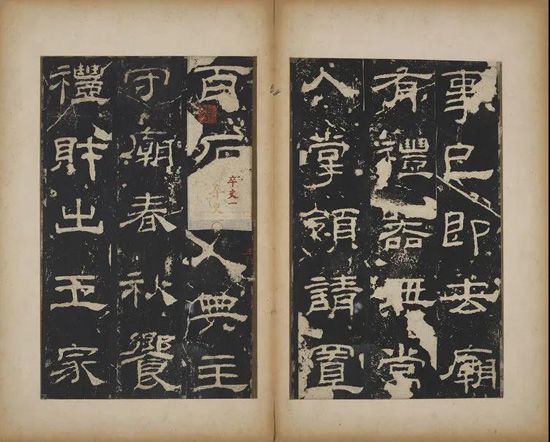 事已即去廟
有禮器無常
人掌領請置
百石
卒史一
人典主
守廟春秋饗
禮財出王家